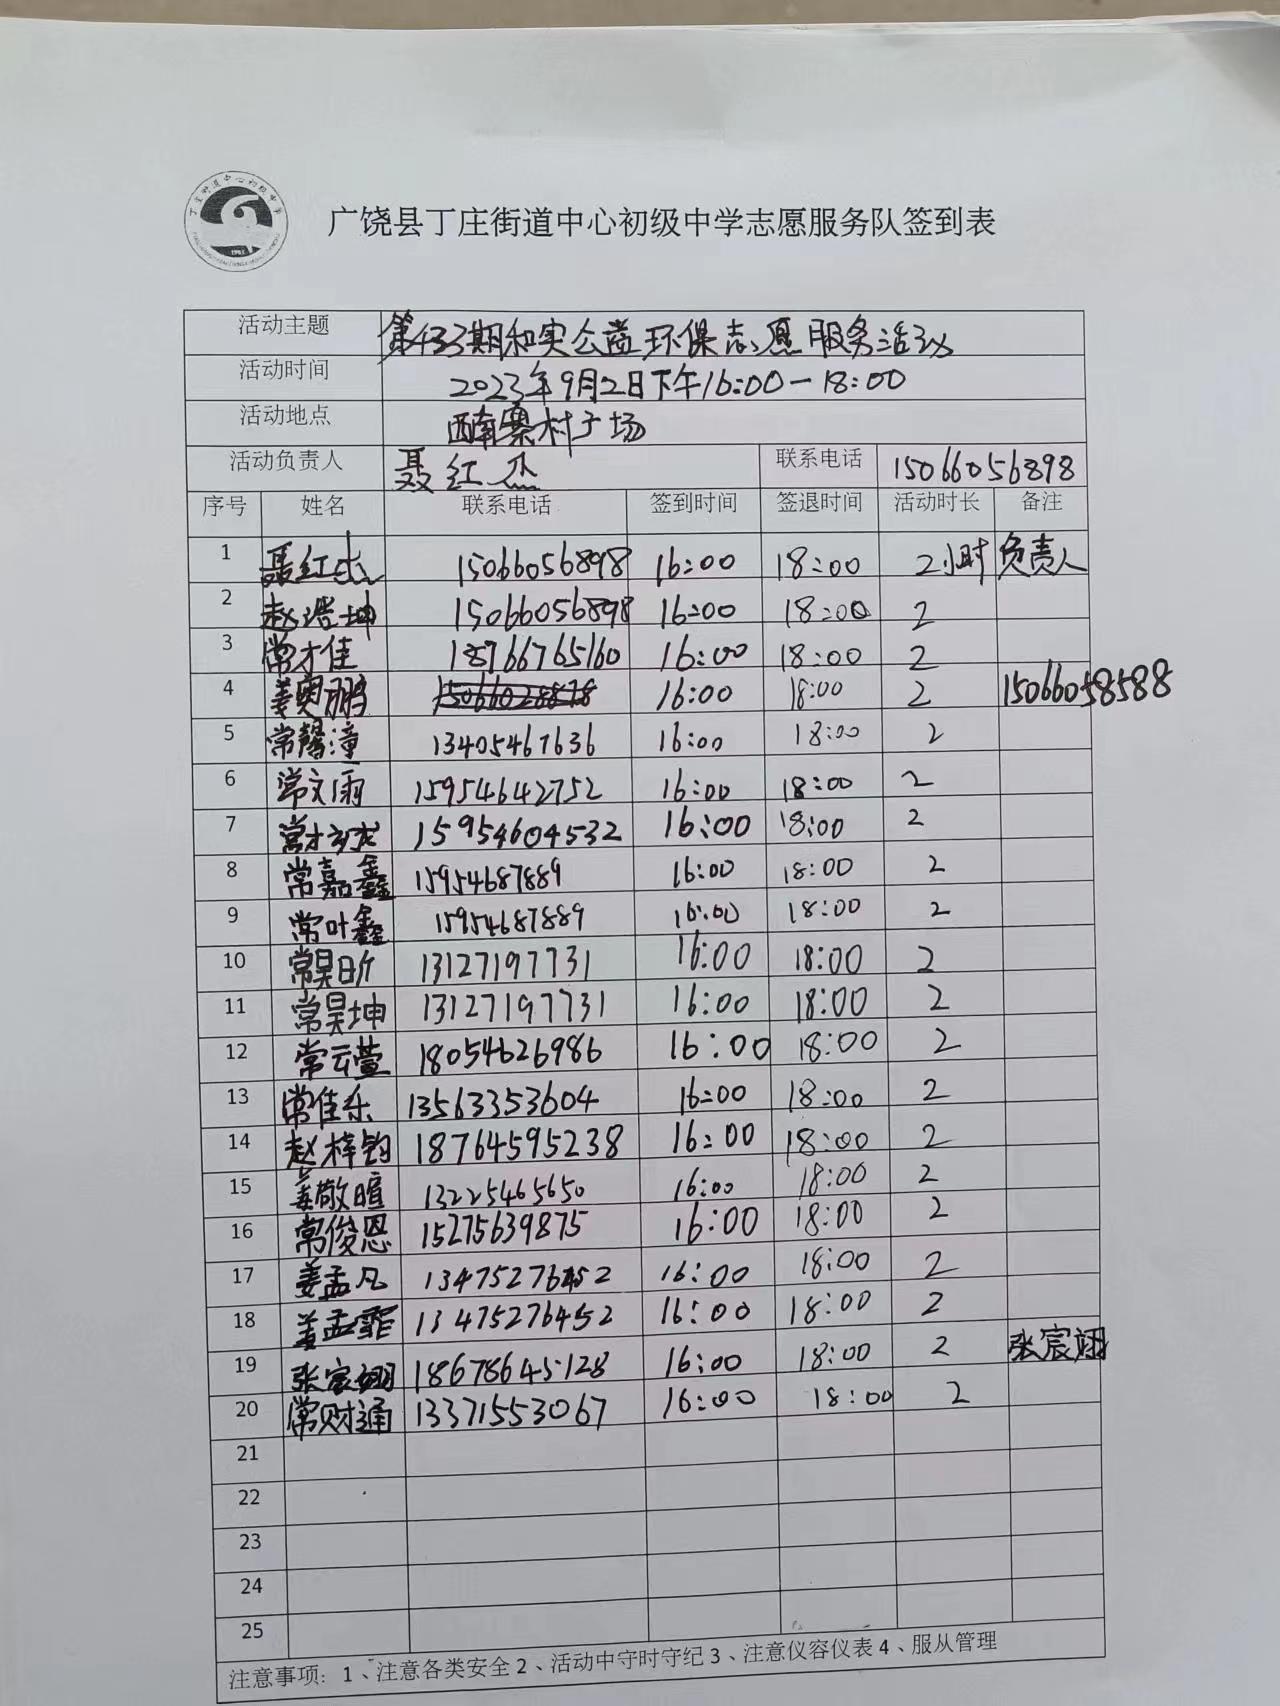 广饶县丁庄街道中心初级中学志愿服务队签到表
活动主题 第433期和实公益环保志愿服务活动
活动时间 2023年9月2日下午16:00-18:00
活动地点 西南寨村广场
活动负责人 聂红杰 联系电话 15066056898
序号 姓名 联系电话 签到时间 签退时间 活动时长 备注
1 聂红杰 15066056898 16:00 18:00 2小时 负责人
2 赵浩坤 15066056898 16:00 18:00 2
3 常才佳 18766765160 16:00 18:00 2
4 姜奥鹏 16:00 18:00 2 15066058588
5 常馨潼 13405467636 16:00 18:00 2
6 常文雨 15954642752 16:00 18:00 2
7 常才 15954604532 16:00 18:00 2
8 常嘉鑫 15954687889 16:00 18:00 2
9 常叶鑫 15954687889 16:00 18:00 2
10 常昊昕 13127197731 16:00 18:00 2
11 常昊坤 13127197731 16:00 18:00 2
12 常云萱 18054626986 16:00 18:00 2
13 常佳乐 13563353604 16:00 18:00 2
14 赵梓钧 18764595238 16:00 18:00 2
15 姜敬暄 13225465650 16:00 18:00 2
16 常俊恩 15275639875 16:00 18:00 2
17 姜孟凡 13475276452 16:00 18:00 2
18 姜孟霏 13475276452 16:00 18:00 2
19 张宸翊 18678645128 16:00 18:00 2 张宸翊
20 常财通 13371553067 16:00 18:00 2
21
22
23
24
25
注意事项：1、注意各类安全 2、活动中守时守纪 3、注意仪容仪表 4、服从管理